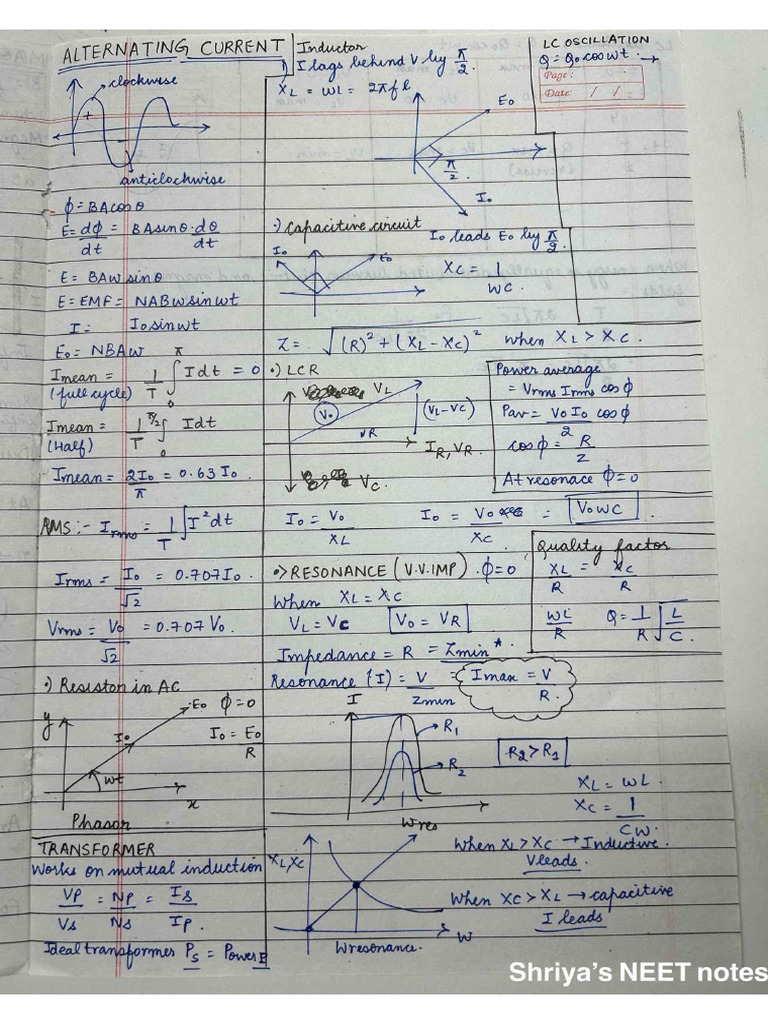 ALTERNATING CURRENT
clockwise
+
anticlockwise
ϕ = BA cos θ
E = dϕ/dt = BA sin θ · dθ/dt
E = BAw sin θ
E = EMF = NABw sin wt
I = I₀ sin wt
E₀ = NBAw
Imean = 1/T ∫₀^π I dt = 0
(full cycle)
Imean = 1/T ∫₀^π/2 I dt
(Half)
Imean = 2I₀/π = 0.63 I₀
RMS :- Irms = 1/T ∫ I² dt
Irms = I₀/√2 = 0.707 I₀.
Vrms = V₀/√2 = 0.707 V₀.
·) Resistor in AC
y
E₀ ϕ = 0
I₀
I₀ = E₀/R
wt
x
Phasor
TRANSFORMER
Works on mutual induction
VP/Vs = NP/Ns = Is/IP.
Ideal transformer Ps = Power P
Inductor
I lags behind V by π/2.
XL = wL = 2πfl
E₀
π/2
I₀
LC OSCILLATION
Q = Q₀ cos wt.
Page:
Date: / /
·) Capacitive circuit
I₀ leads E₀ by π/2.
I₀
E₀
XC = 1/WC
Z = √(R)² + (XL - XC)² when XL > XC.
·) LCR
VL
V₀
(VL - VC)
VR
IR, VR
VC.
Power average
= Vrms Irms cos ϕ
Pav = V₀I₀/2 cos ϕ
cos ϕ = R/Z
At resonace ϕ = 0
I₀ = V₀/XL
I₀ = V₀/XC = V₀WC.
·> RESONANCE (V.V.IMP). ϕ = 0
When XL = XC
VL = VC V₀ = VR
Impedance = R = Zmin*
Resonance (I) = V/Zmin = Imax = V/R.
Quality factor
XL/R = XC/R
WL/R Q = 1/R √L/C.
I
R₁
R₂
R₂ > R₁
Wreo
XL = WL.
XC = 1/CW.
XL, XC
W
Wresonance.
When XL > XC → Inductive.
V leads.
When XC > XL → capacitive
I leads
Shriya's NEET notes